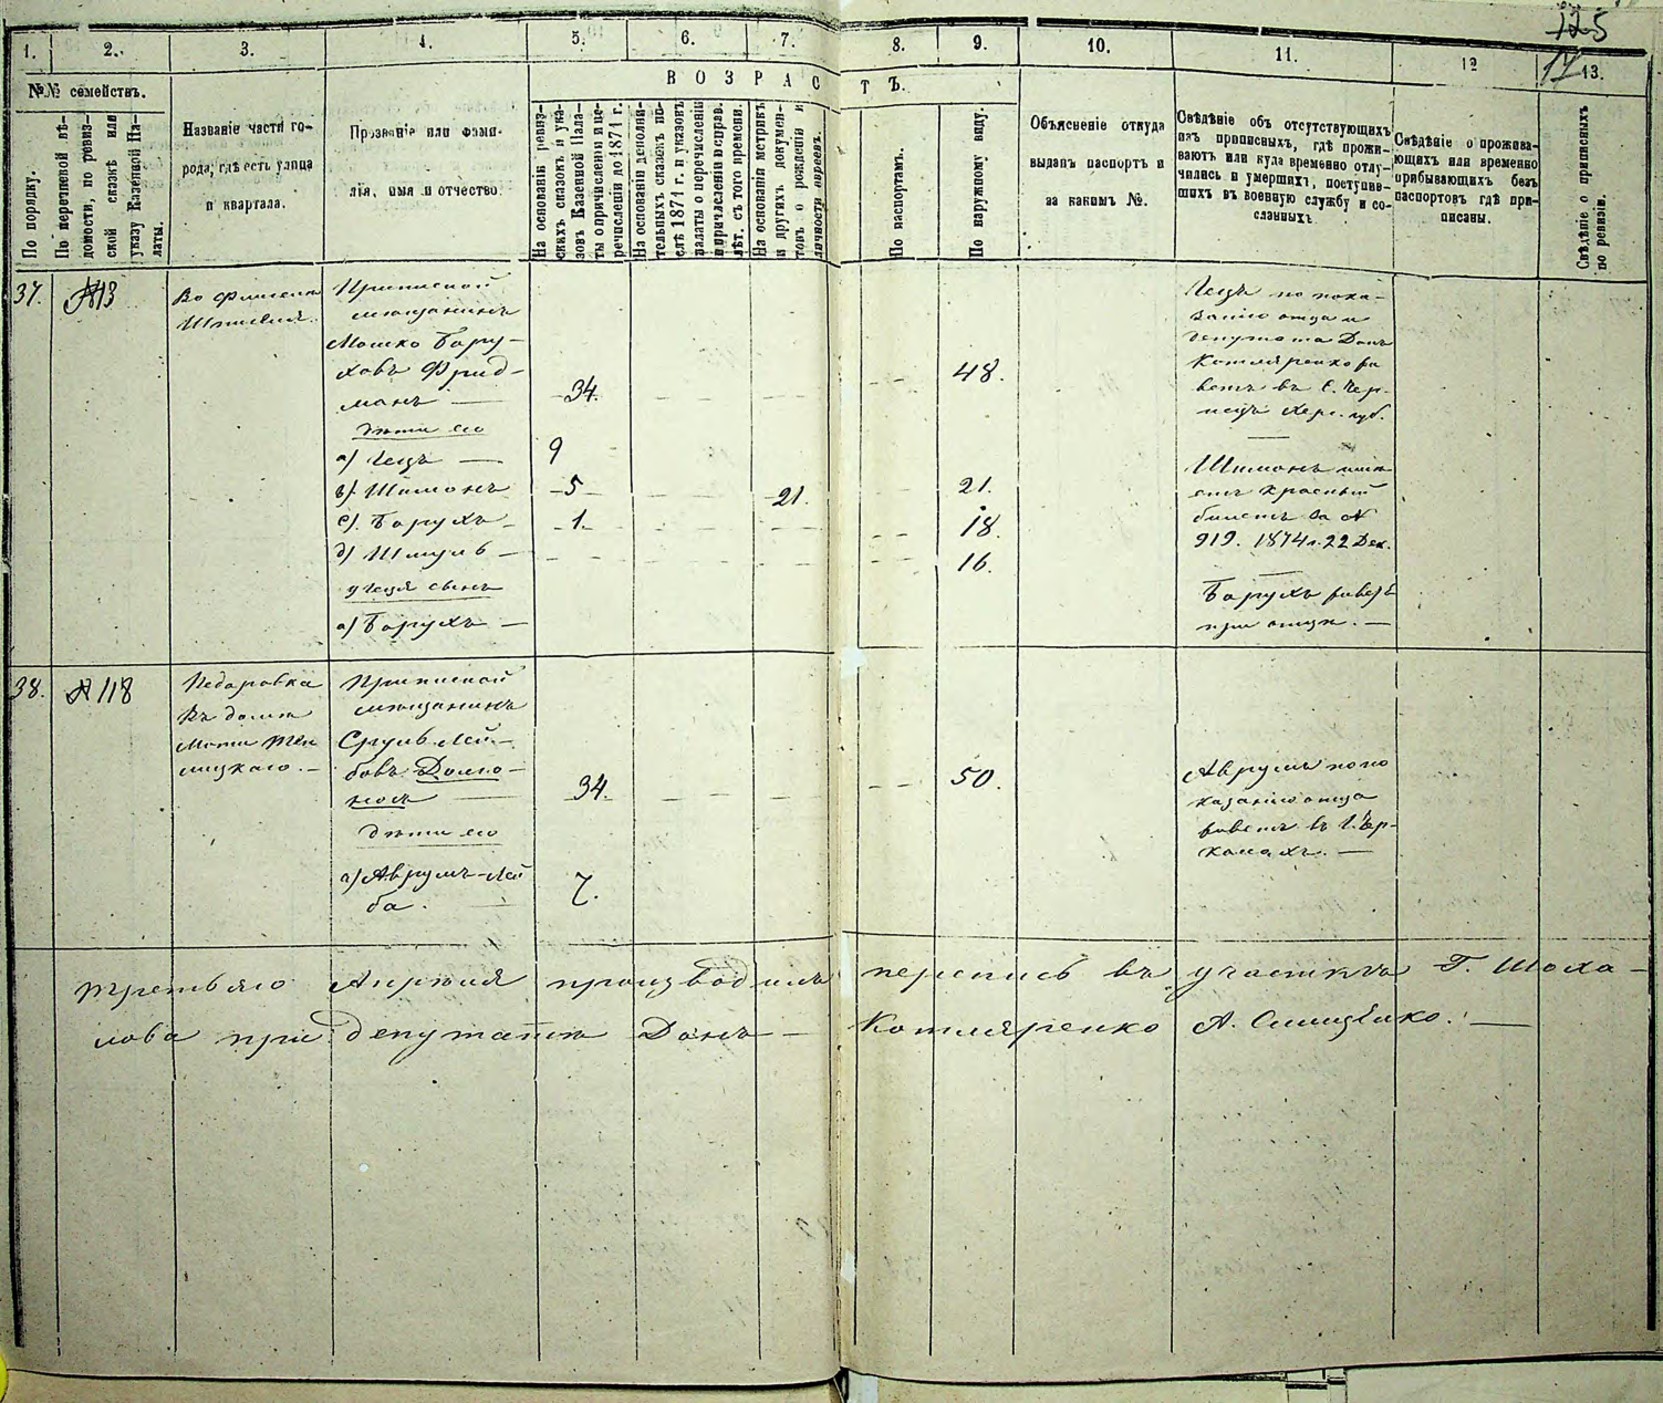 125
17
1.
2.
3.
4.
5.
6.
7.
8.
9.
10.
11.
12
13.
№№ семействъ.
ВОЗРАСТЪ.
По порядку.
По переписной вѣ-
домости, по ревиз-
ской сказкѣ или
указу Казенной Па-
латы.
Названіе части го-
рода, гдѣ есть улица
и квартала.
Прозваніе или фами-
лія, имя и отчество.
На основаніи ревиз-
скихъ сказокъ и ука-
зовъ Казенной Пала-
ты о причисленіи и пе-
речисленіи до 1871 г.
На основаніи дополни-
тельныхъ сказокъ по-
слѣ 1871 г. и указовъ
палаты о перечисленіи
и причисленіи и исправ.
лѣт. съ того времени.
На основаніи метрикъ
и другихъ докумен-
товъ о рожденіи и
личности евреевъ.
По паспортамъ.
По наружному виду.
Объясненіе откуда
выданъ паспортъ и
за какимъ №.
Свѣдѣніе объ отсутствующихъ
изъ приписныхъ, гдѣ прожи-
ваютъ или куда временно отлу-
чились и умершихъ, поступив-
шихъ въ военную службу и со-
сланныхъ
Свѣдѣніе о прожива-
ющихъ или временно
прибывающихъ безъ
паспортовъ гдѣ при-
писаны.
Свѣдѣніе о приписныхъ
по ревизіи.
37.
№13
Во флигели
Приписной
мѣщанинъ
Мошко Бору-
ховъ Фрид-
манъ —
34.
48.
дѣти его
а) Лейзъ —
9
в) Шимонъ
5
21.
21.
с) Борухъ
1.
18.
д) Шмуль —
16.
у Лейзя сынъ
а) Борухъ —
Лейзъ по пока-
занію отца и
депутата Донъ
Котляренко жи
ветъ въ
Хер. губ.
Шимонъ имѣ
етъ красный
билетъ за №
919. 1874 г. 22 Дек.
Борухъ живетъ
при отцѣ. —
38.
№ 118
Недоровка
Въ домѣ
Моти
Приписной
мѣщанинъ
Сруль Лей-
бовъ Долго-
носъ
34.
50.
дѣти его
а) Аврумъ-Лей
ба.
7.
Аврумъ по по
казанію отца
живетъ въ г. Чер-
касахъ. —
Третьяго Апрѣля производилъ перепись въ участкѣ Г. Шоха-
лова при депутатѣ Донъ — Котляренко А.